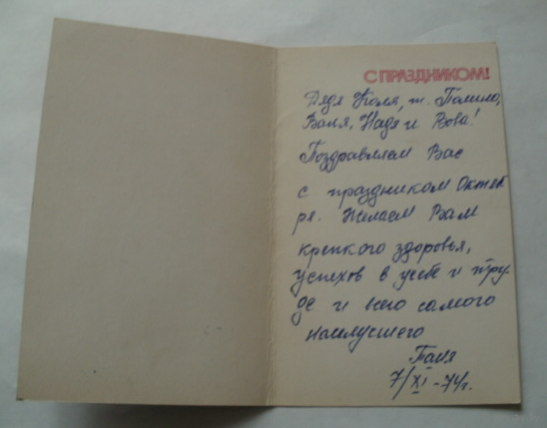 С ПРАЗДНИКОМ!
Дядя Коля, т.
Валя, Надя и Вова!
Поздравляем Вас
с праздником Октяб
ря. Желаем Вам
крепкого здоровья,
успехов в учебе и тру
де и всего самого
наилучшего
7/XI-74г.